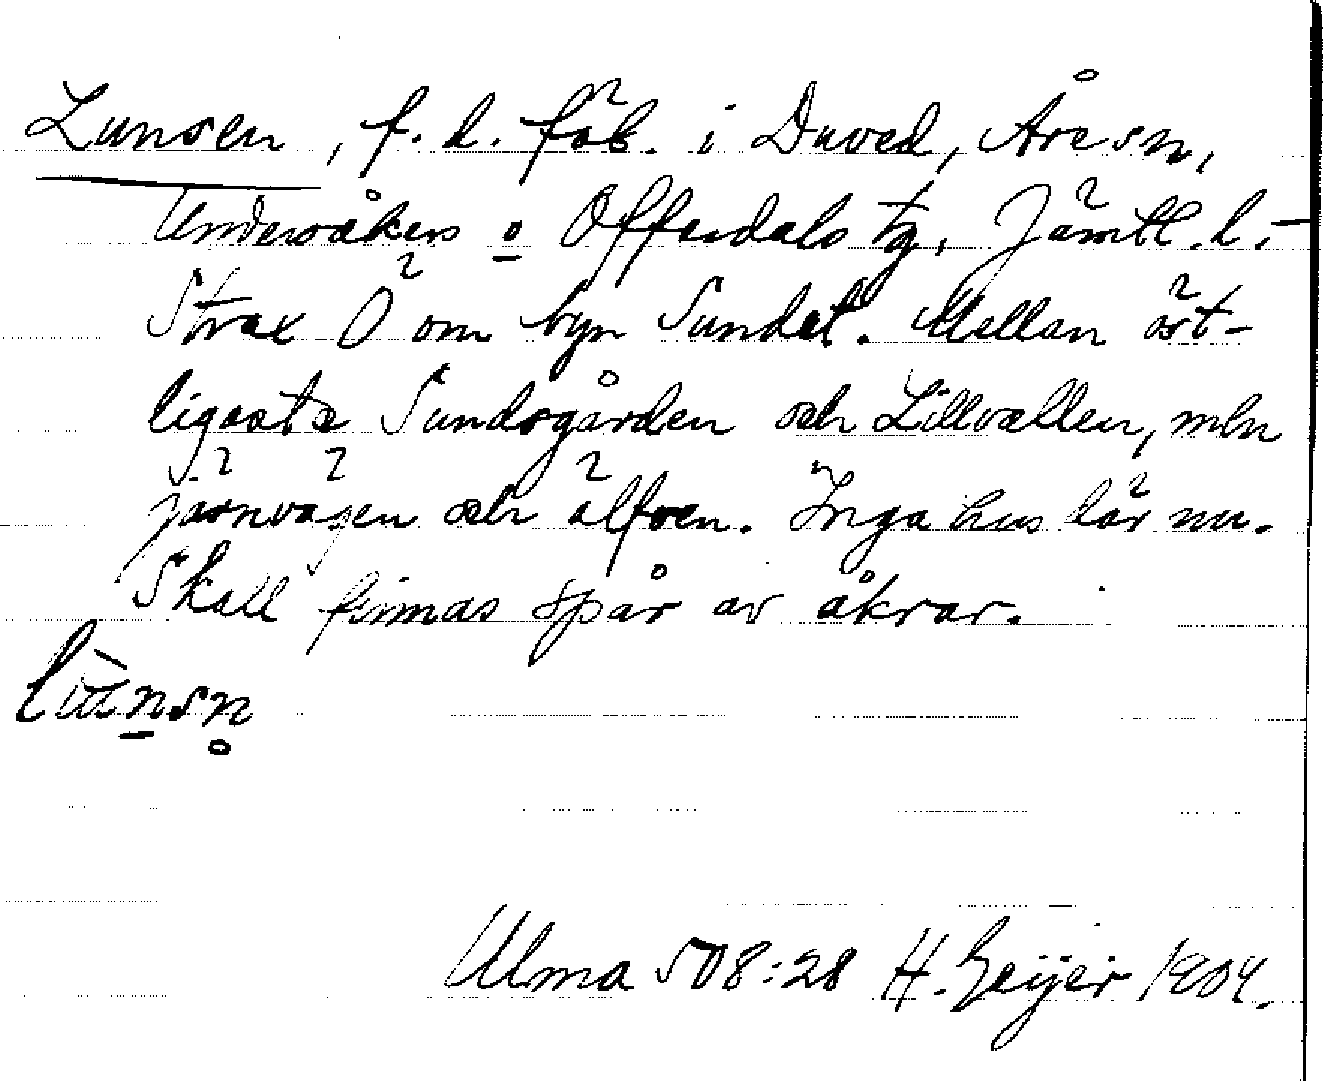 Lunsen, f. d. fäb. i Duved, Åre sn,
Undersåkers o Offerdals tg, Jämtl. l. –
Strax Ö om byn Sundet. Mellan öst-
ligaste Sundsgården och Lillvallen, mln
järnvägen och älfven. Inga hus där nu.
Skall finnas spår av åkrar.
Ulma 508:28 H. Geijer 1904.